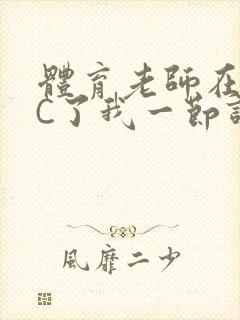 體育老師在
C了我一節
風靡二少